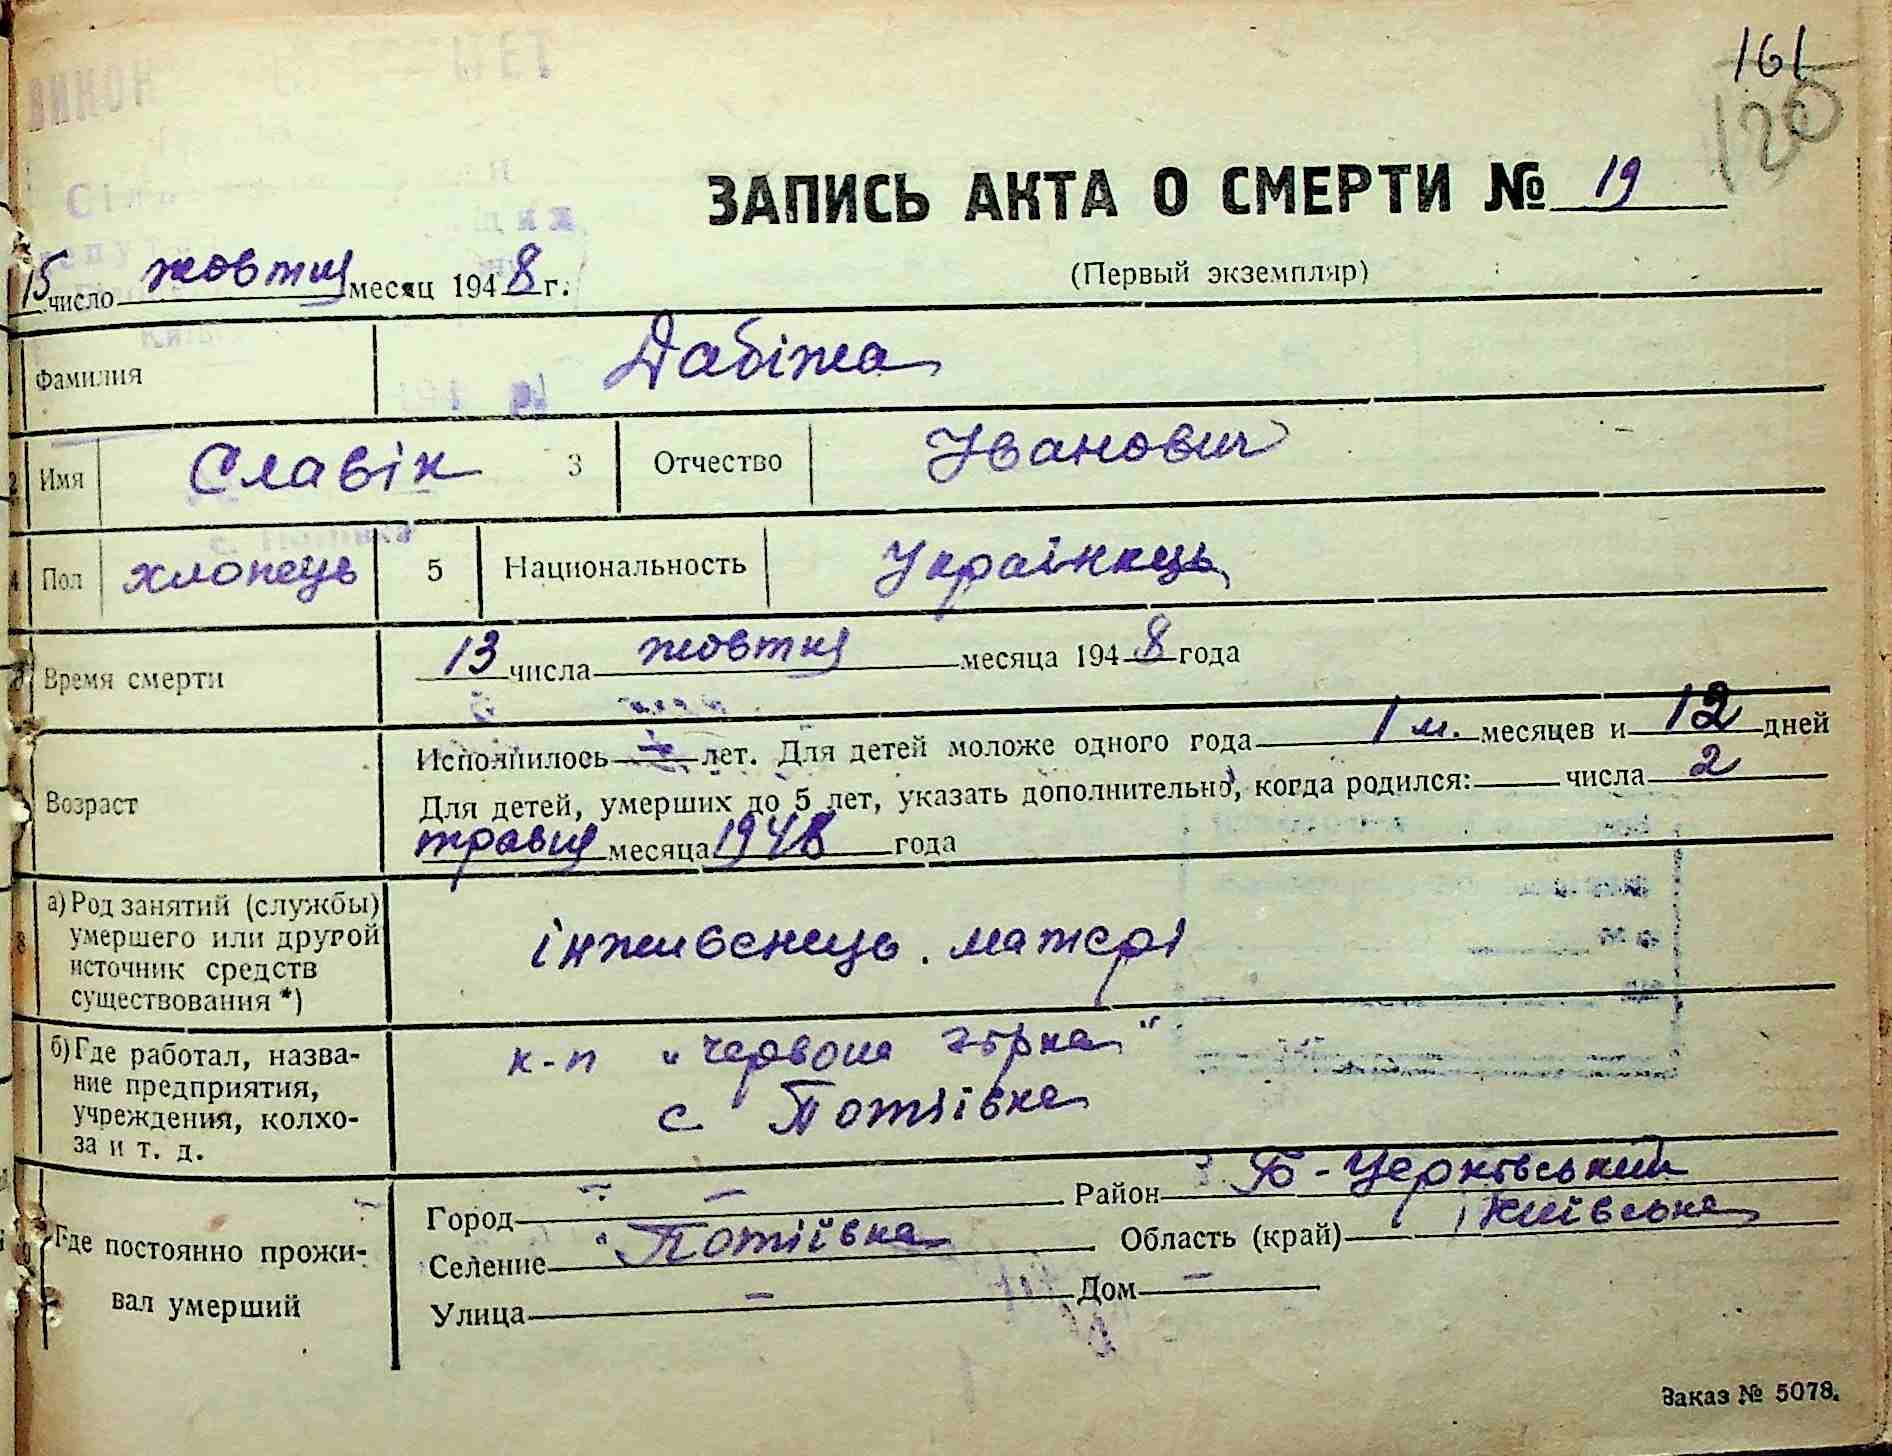 161
120
ЗАПИСЬ АКТА О СМЕРТИ № 19
15 число жовтня месяц 1948 г.
(Первый экземпляр)
Фамилия Дабіжа
2 Имя Славік 3 Отчество Іванович
4 Пол хлопець 5 Национальность Українець
Время смерти 13 числа жовтня месяца 1948 года
Возраст
Исполнилось — лет. Для детей моложе одного года 1 м. месяцев и 12 дней
Для детей, умерших до 5 лет, указать дополнительно, когда родился: числа 2
травня месяца 1948 года
8 а) Род занятий (службы)
умершего или другой
источник средств
существования *)
інживенець. матері
б) Где работал, назва-
ние предприятия,
учреждения, колхо-
за и т. д.
к-п „Червона зірка"
с Потіївка
Где постоянно прожи-
вал умерший
Город — Район Б-Церківський
Селение Потіївка Область (край) Київська
Улица — Дом —
Заказ № 5078.